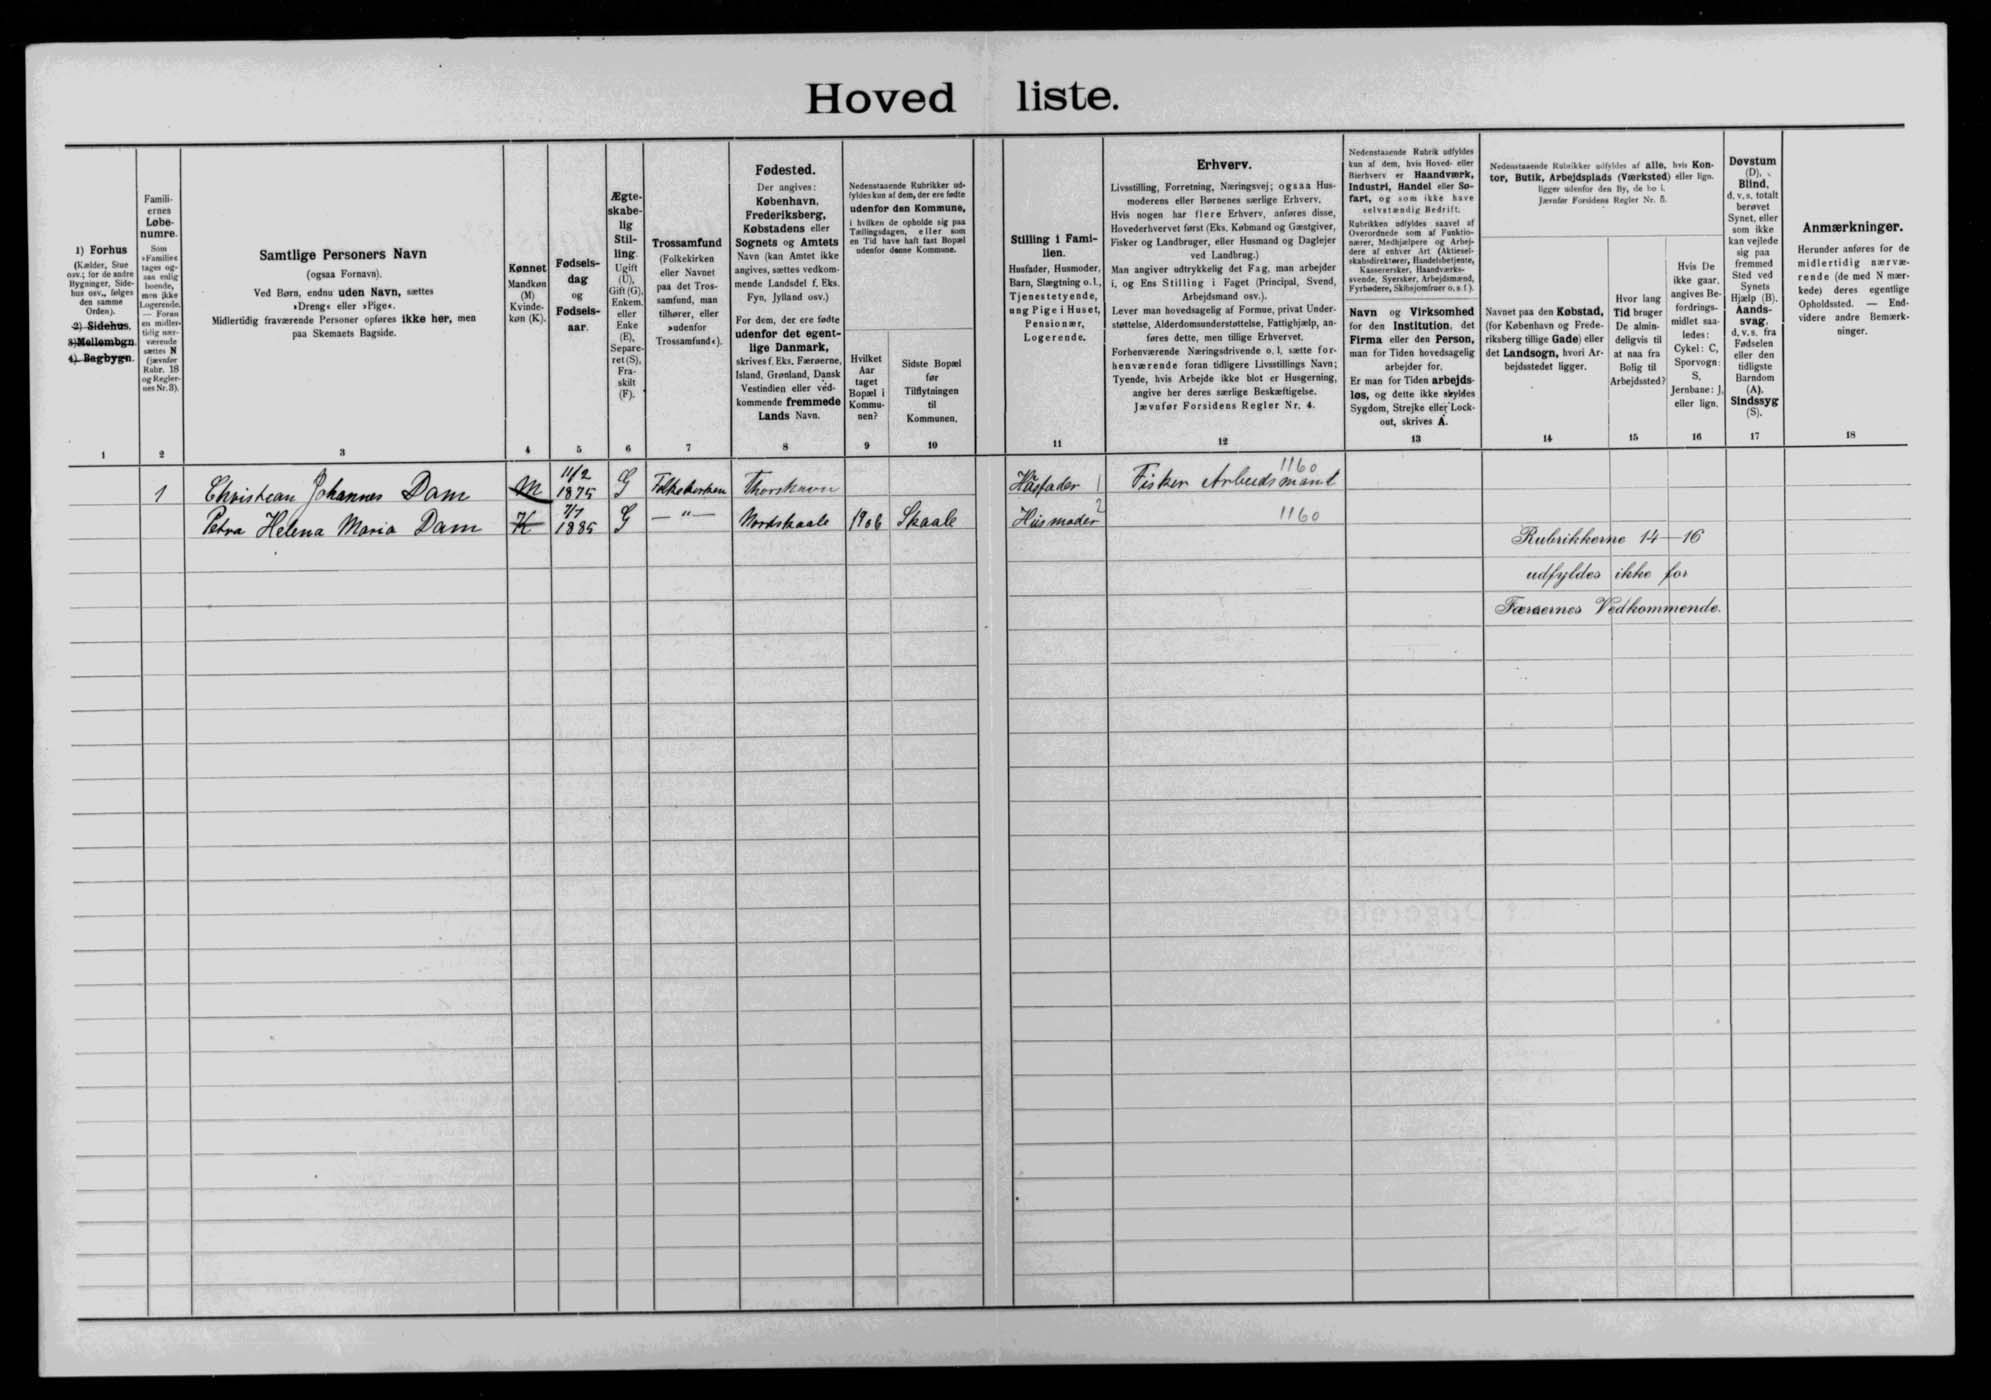 Hoved liste.
1) Forhus
(Kælder, Stue
osv.; for de andre
Bygninger, Side-
hus osv., følges
den samme
Orden).
2) Sidehus.
3) Mellembgn.
4) Bagbygn.
1
Famili-
ernes
Løbe-
numre.
Som
»Familie«
tages og-
saa enlig
boende,
men ikke
Logerende.
— Foran
en midler-
tidig nær-
værende
sættes N
(jævnfør
Rubr. 18
og Regler-
nes Nr. 3).
2
Samtlige Personers Navn
(ogsaa Fornavn).
Ved Børn, endnu uden Navn, sættes
»Dreng« eller »Pige«.
Midlertidig fraværende Personer opføres ikke her, men
paa Skemaets Bagside.
3
Kønnet
Mandkøn
(M)
Kvinde-
køn (K).
4
Fødsels-
dag
og
Fødsels-
aar.
5
Ægte-
skabe-
lig
Stil-
ling.
Ugift
(U),
Gift (G),
Enkem.
eller
Enke
(E),
Separe-
ret (S),
Fra-
skilt
(F).
6
Trossamfund
(Folkekirken
eller Navnet
paa det Tros-
samfund, man
tilhører, eller
»udenfor
Trossamfund«).
7
Fødested.
Der angives:
København,
Frederiksberg,
Købstadens eller
Sognets og Amtets
Navn (kan Amtet ikke
angives, sættes vedkom-
mende Landsdel f. Eks.
Fyn, Jylland osv.)
For dem, der ere fødte
udenfor det egent-
lige Danmark,
skrives f. Eks. Færøerne,
Island, Grønland, Dansk
Vestindien eller ved-
kommende fremmede
Lands Navn.
8
Nedenstaaende Rubrikker ud-
fyldes kun af dem, der ere fødte
udenfor den Kommune,
i hvilken de opholde sig paa
Tællingsdagen, eller som
en Tid have haft fast Bopæl
udenfor denne Kommune.
Hvilket
Aar
taget
Bopæl i
Kommu-
nen?
9
Sidste Bopæl
før
Tilflytningen
til
Kommunen.
10
Stilling i Fami-
lien.
Husfader, Husmoder,
Barn, Slægtning o. l.,
Tjenestetyende,
ung Pige i Huset,
Pensionær,
Logerende.
11
Erhverv.
Livsstilling, Forretning, Næringsvej; ogsaa Hus-
moderens eller Børnenes særlige Erhverv.
Hvis nogen har flere Erhverv, anføres disse,
Hovederhvervet først (Eks. Købmand og Gæstgiver,
Fisker og Landbruger, eller Husmand og Daglejer
ved Landbrug.)
Man angiver udtrykkelig det Fag, man arbejder
i, og Ens Stilling i Faget (Principal, Svend,
Arbejdsmand osv.).
Lever man hovedsagelig af Formue, privat Under-
støttelse, Alderdomsunderstøttelse, Fattighjælp, an-
føres dette, men tillige Erhvervet.
Forhenværende Næringsdrivende o. l. sætte for-
henværende foran tidligere Livsstillings Navn;
Tyende, hvis Arbejde ikke blot er Husgerning,
angive her deres særlige Beskæftigelse.
Jævnfør Forsidens Regler Nr. 4.
12
Nedenstaaende Rubrik udfyldes
kun af dem, hvis Hoved- eller
Bierhverv er Haandværk,
Industri, Handel eller Sø-
fart, og som ikke have
selvstændig Bedrift.
Rubrikken udfyldes saavel af
Overordnede som af Funktio-
nærer, Medhjælpere og Arbej-
dere af enhver Art (Aktiesel-
skabsdirektører, Handelsbetjente,
Kassererske, Haandværks-
svende, Syersker, Arbejdsmænd,
Fyrbødere, Skibsjomfruer o. s. f.).
Navn og Virksomhed
for den Institution, det
Firma eller den Person,
man for Tiden hovedsagelig
arbejder for.
Er man for Tiden arbejds-
løs, og dette ikke skyldes
Sygdom, Strejke eller Lock-
out, skrives A.
13
Nedenstaaende Rubrikker udfyldes af alle, hvis Kon-
tor, Butik, Arbejdsplads (Værksted) eller lign.
ligger udenfor den By, de bo i.
Jævnfør Forsidens Regler Nr. 5.
Navnet paa den Købstad,
(for København og Frede-
riksberg tillige Gade) eller
det Landsogn, hvori Ar-
bejdsstedet ligger.
14
Hvor lang
Tid bruger
De almin-
deligvis til
at naa fra
Bolig til
Arbejdssted?
15
Hvis De
ikke gaar,
angives Be-
fordrings-
midlet saa-
ledes:
Cykel: C,
Sporvogn:
S,
Jernbane: J,
eller lign.
16
Døvstum
(D),
Blind,
d. v. s. totalt
berøvet
Synet, eller
som ikke
kan vejlede
sig paa
fremmed
Sted ved
Synets
Hjælp (B).
Aands-
svag,
d. v. s. fra
Fødselen
eller den
tidligste
Barndom
(A).
Sindssyg
(S).
17
Anmærkninger.
Herunder anføres for de
midlertidig nærvæ-
rende (de med N mær-
kede) deres egentlige
Opholdssted. — End-
videre andre Bemærk-
ninger.
18
1 Christian Johannes Dam M 11/2 1875 G Folkekirken Thorshavn Husfader 1 Fisker Arbeidsmand 1160
Petra Helena Maria Dam K 7/7 1885 G — " — Nordskaale 1906 Skaale Husmoder 2 1160
Rubrikkerne 14—16
udfyldes ikke for
Færøernes Vedkommende.